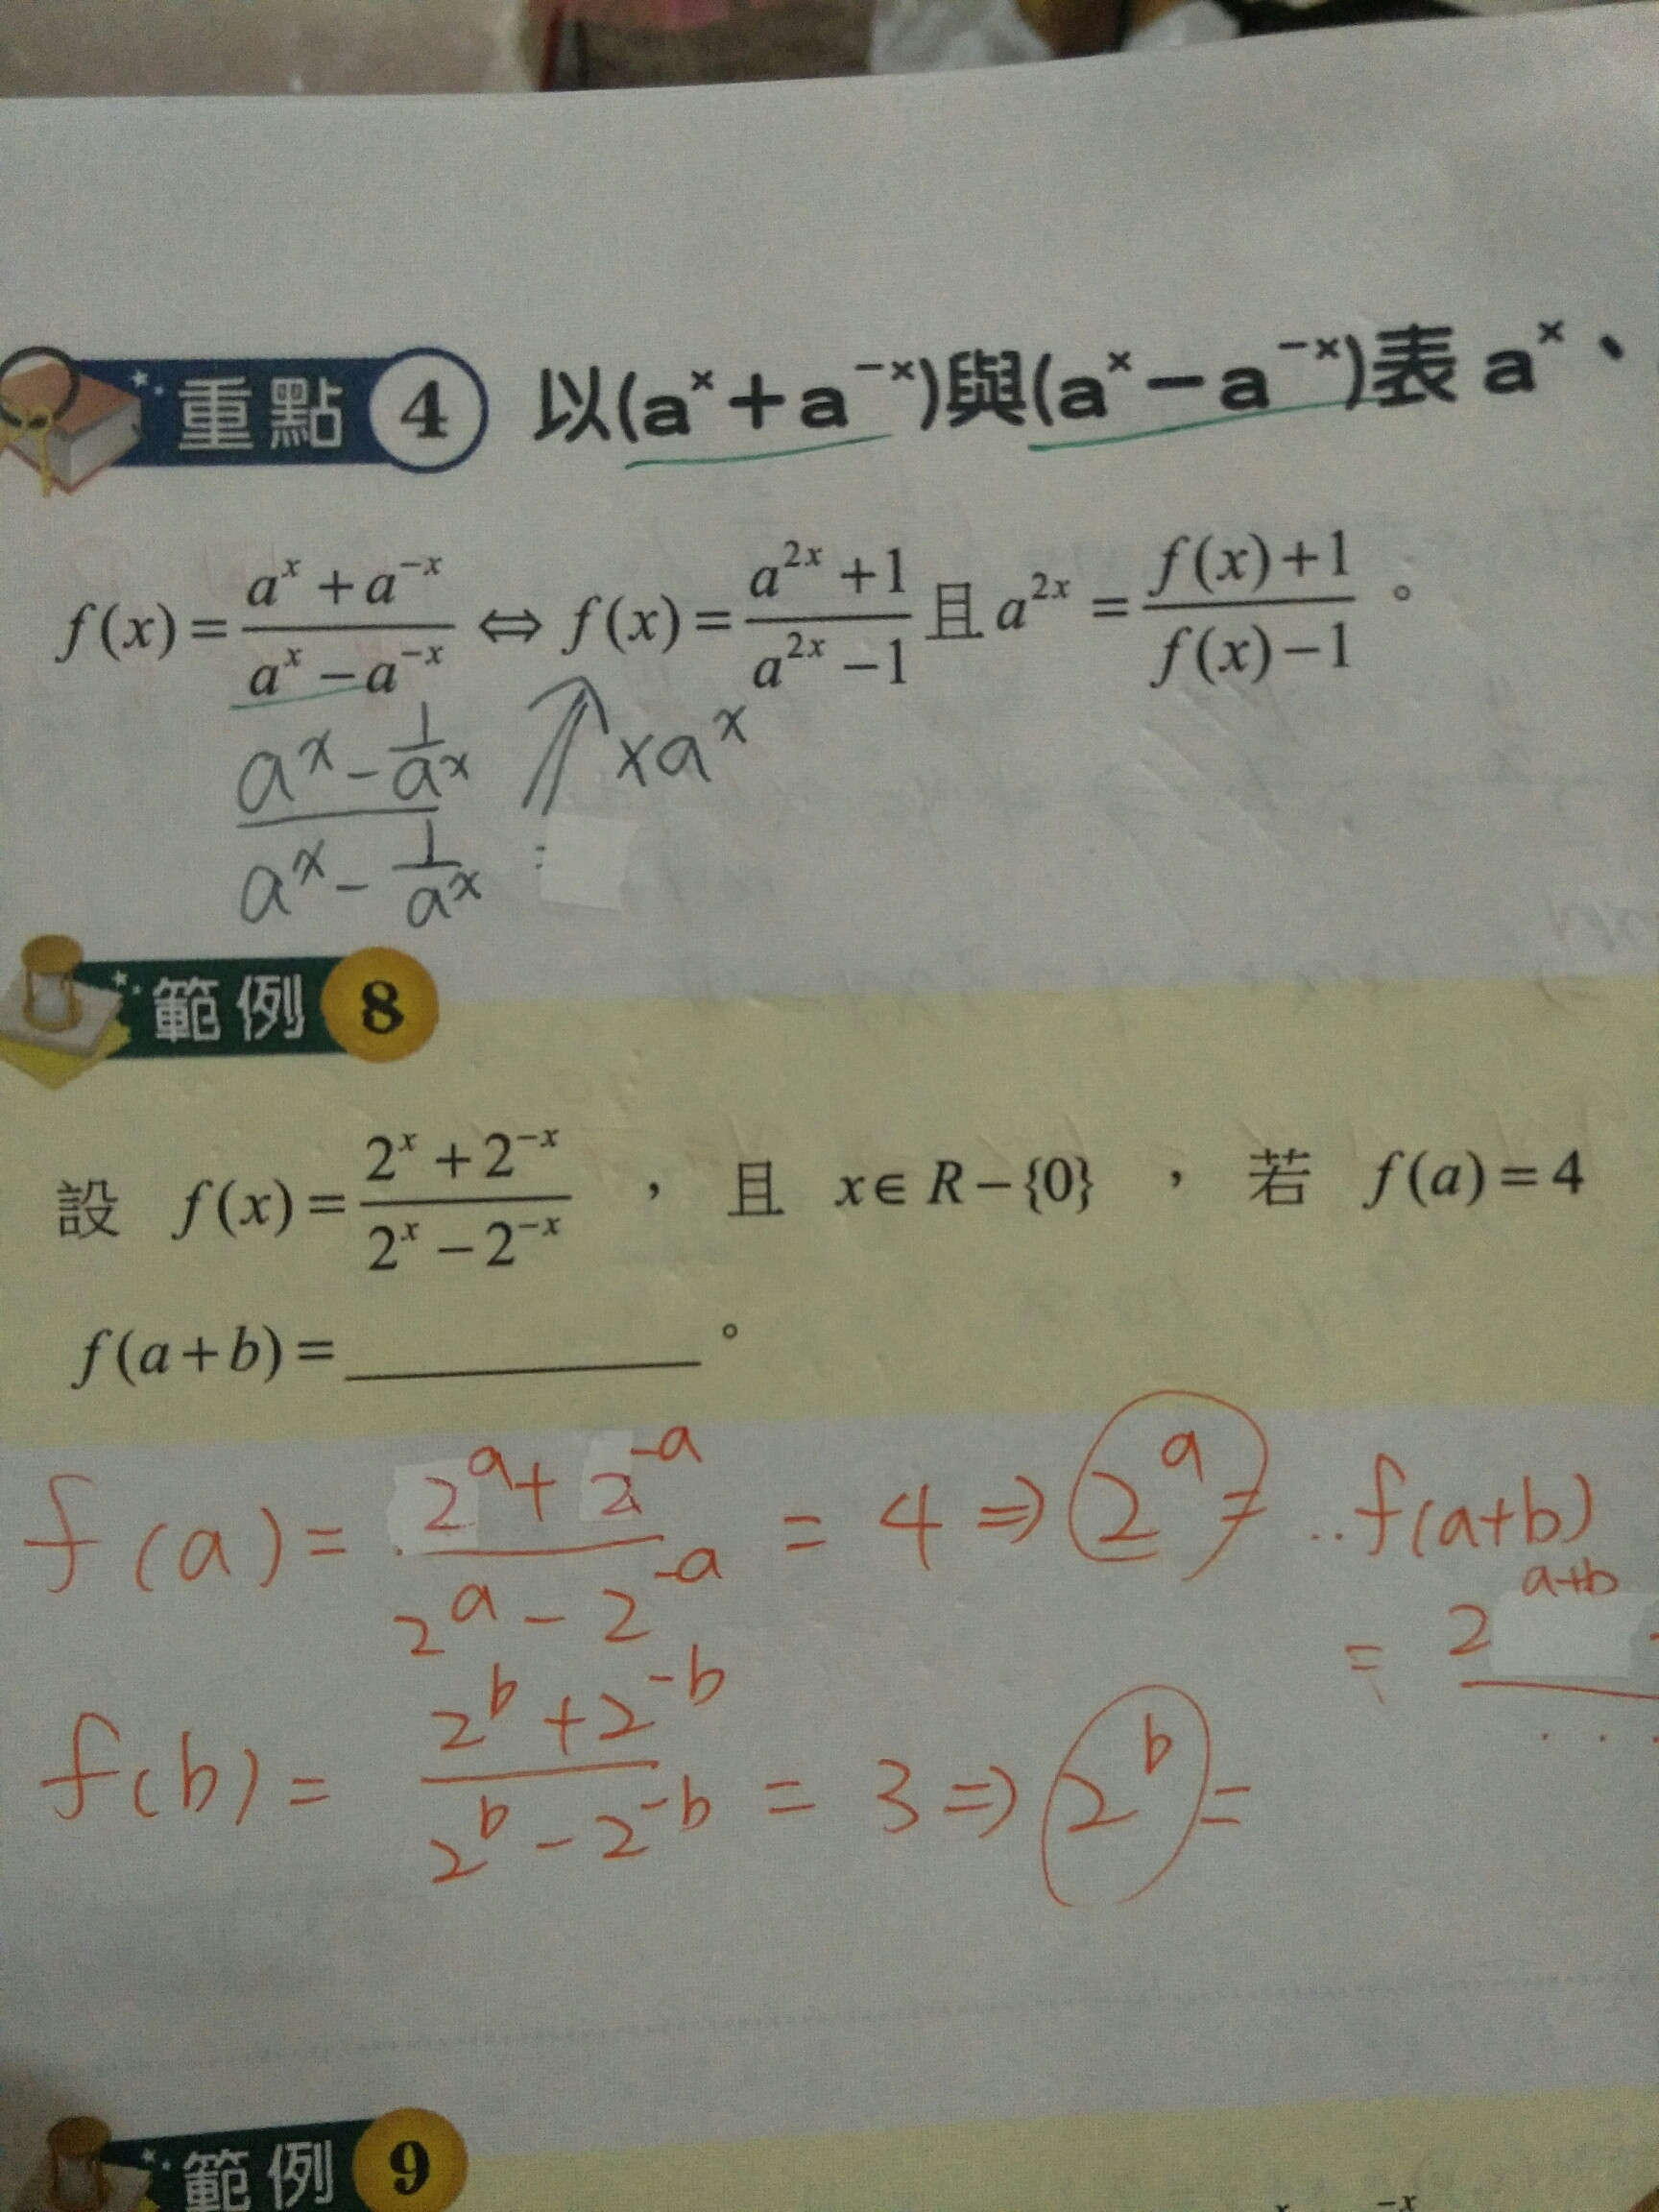 重點 4 以(aˣ+a⁻ˣ)與(aˣ−a⁻ˣ)表 aˣ、
f(x)=(aˣ+a⁻ˣ)/(aˣ−a⁻ˣ) ⇔ f(x)=(a²ˣ+1)/(a²ˣ−1) 且 a²ˣ=(f(x)+1)/(f(x)−1)。
(aˣ−1/aˣ)/(aˣ−1/aˣ) = ⇑ ×aˣ
範例 8
設 f(x)=(2ˣ+2⁻ˣ)/(2ˣ−2⁻ˣ) , 且 x∈R−{0} , 若 f(a)=4
f(a+b)=__________。
f(a)=(2ᵃ+2⁻ᵃ)/(2ᵃ−2⁻ᵃ)=4⇒2ᵃ= ..f(a+b)
=2ᵃ⁺ᵇ/...
f(b)=(2ᵇ+2⁻ᵇ)/(2ᵇ−2⁻ᵇ)=3⇒2ᵇ=
範例 9